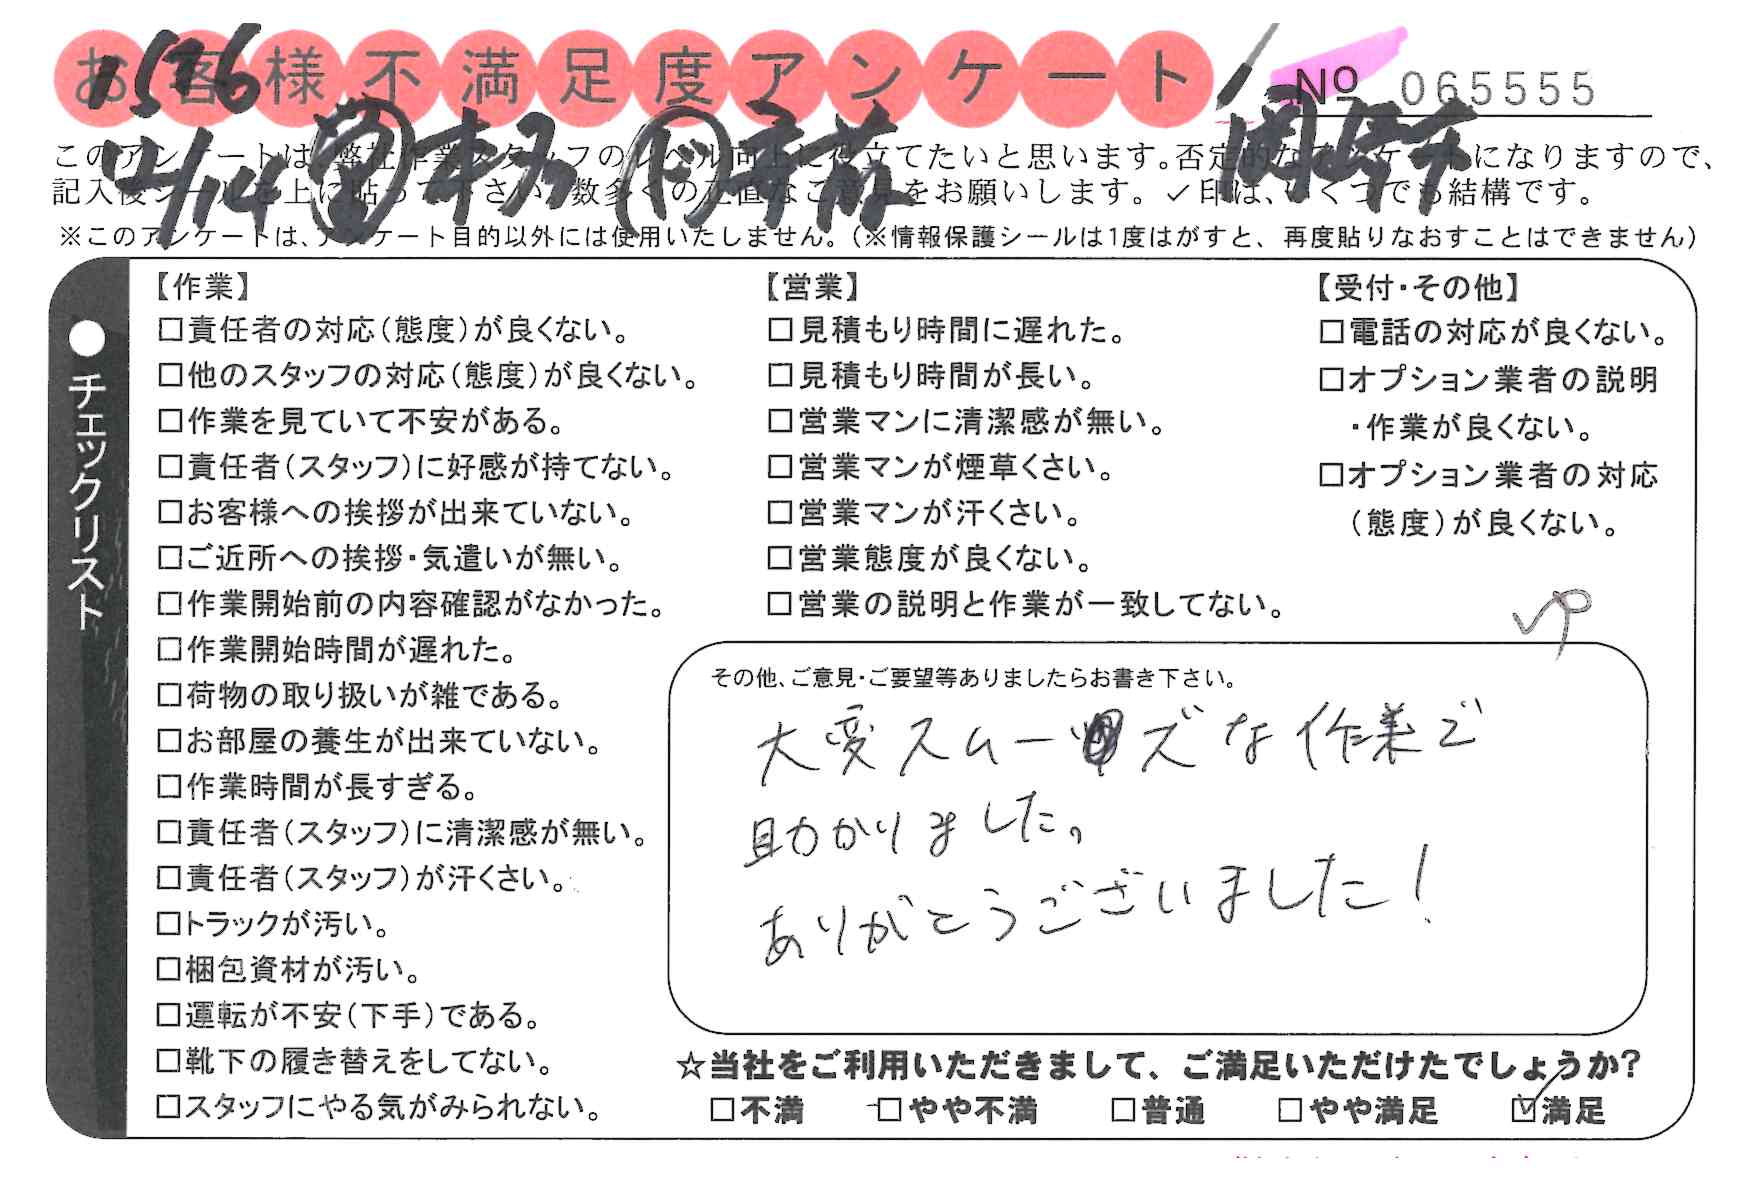 お客様不満足度アンケート
1536
No 065555
12/14
このアンケートは、弊社作業スタッフのレベル向上に役立てたいと思います。否定的なアンケートになりますので、
記入後シールを上に貼って下さい。数多くの正直なご意見をお願いします。✓印は、いくつでも結構です。
※このアンケートは、アンケート目的以外には使用いたしません。(※情報保護シールは1度はがすと、再度貼りなおすことはできません)
●チェックリスト
【作業】
□責任者の対応(態度)が良くない。
□他のスタッフの対応(態度)が良くない。
□作業を見ていて不安がある。
□責任者(スタッフ)に好感が持てない。
□お客様への挨拶が出来ていない。
□ご近所への挨拶・気遣いが無い。
□作業開始前の内容確認がなかった。
□作業開始時間が遅れた。
□荷物の取り扱いが雑である。
□お部屋の養生が出来ていない。
□作業時間が長すぎる。
□責任者(スタッフ)に清潔感が無い。
□責任者(スタッフ)が汗くさい。
□トラックが汚い。
□梱包資材が汚い。
□運転が不安(下手)である。
□靴下の履き替えをしてない。
□スタッフにやる気がみられない。
【営業】
□見積もり時間に遅れた。
□見積もり時間が長い。
□営業マンに清潔感が無い。
□営業マンが煙草くさい。
□営業マンが汗くさい。
□営業態度が良くない。
□営業の説明と作業が一致してない。
【受付・その他】
□電話の対応が良くない。
□オプション業者の説明
・作業が良くない。
□オプション業者の対応
(態度)が良くない。
その他、ご意見・ご要望等ありましたらお書き下さい。
大変スムーズな作業で
助かりました。
ありがとうございました!
☆当社をご利用いただきまして、ご満足いただけたでしょうか?
□不満 □やや不満 □普通 □やや満足 ☑満足